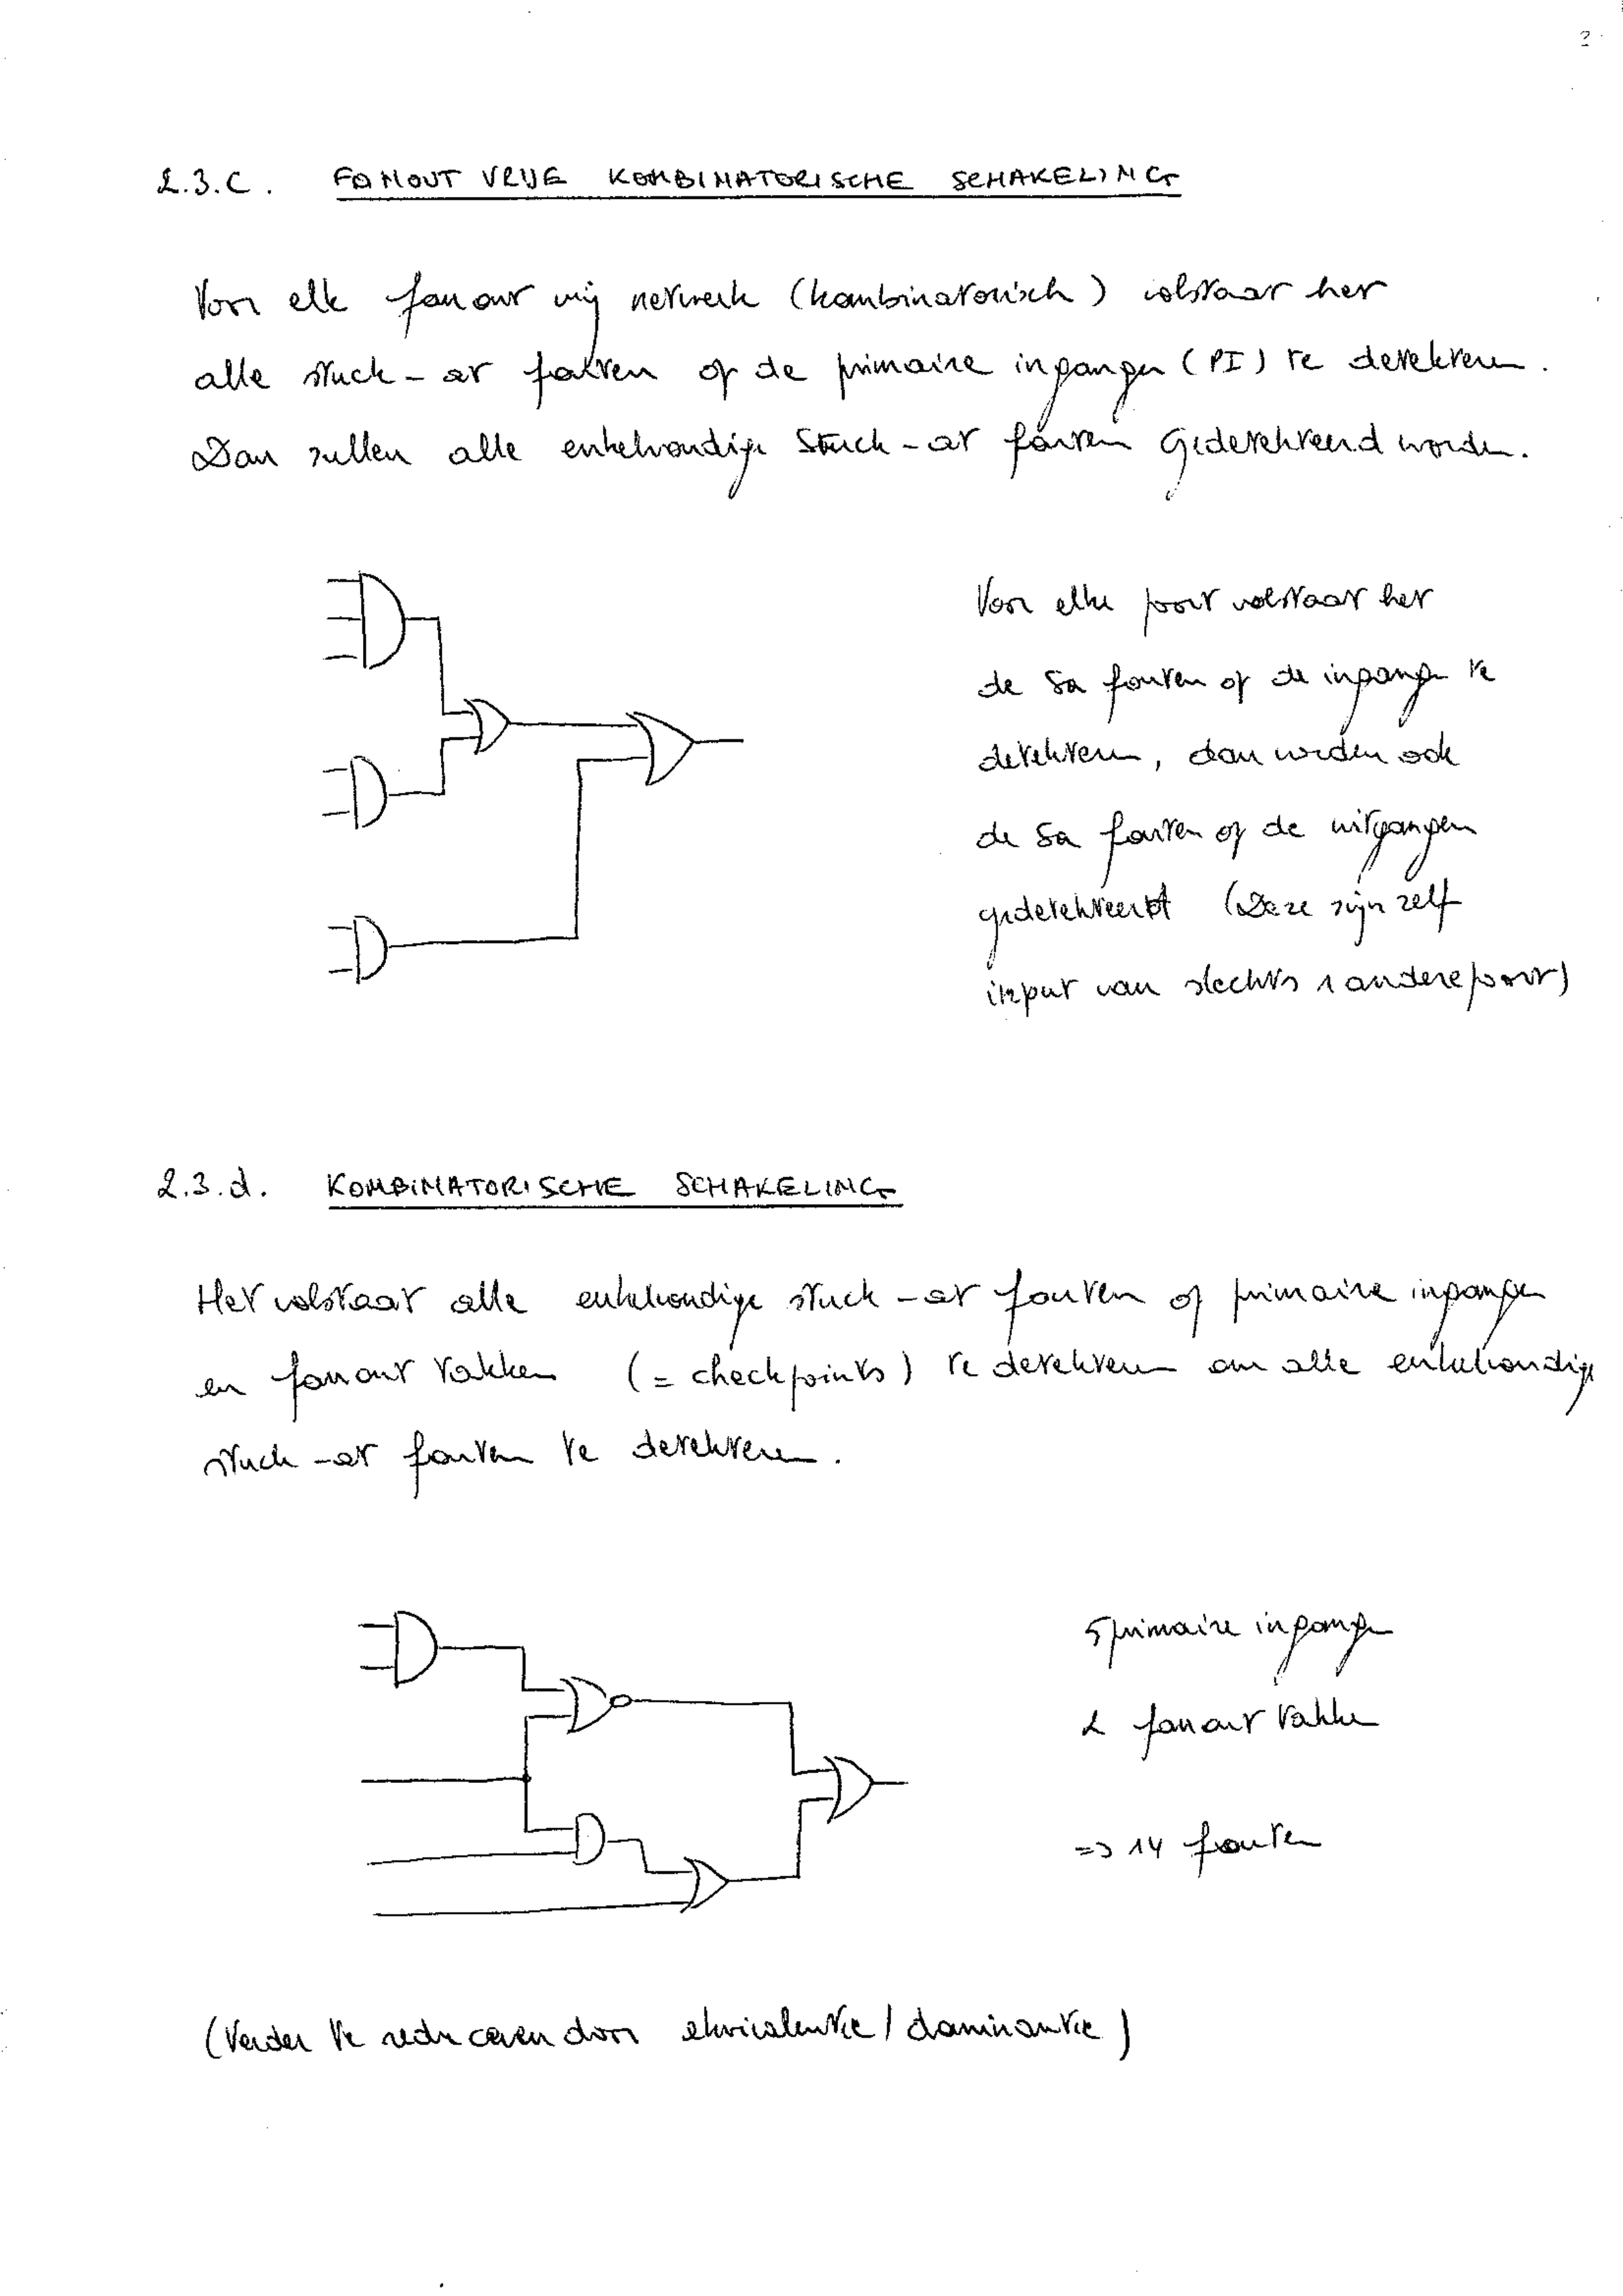 2.3.c. FANOUT VRIJE KOMBINATORISCHE SCHAKELING
Voor elk fanout vrij netwerk (kombinatorisch) volstaat het
alle stuck-at fouten op de primaire ingangen (PI) te detekteren.
Dan zullen alle enkelvoudige stuck-at fouten gedetekteerd worden.
Voor elke poort volstaat het
de sa fouten op de ingangen te
detekteren, dan worden ook
de sa fouten op de uitgangen
gedetekteerd (Deze zijn zelf
input van slechts 1 andere poort)
2.3.d. KOMBINATORISCHE SCHAKELING
Het volstaat alle enkelvoudige stuck-at fouten op primaire ingangen
en fanout takken (= checkpoints) te detekteren om alle enkelvoudige
stuck-at fouten te detekteren.
5 primaire ingangen
2 fanout takken
=> 14 fouten
(Verder te reduceren door ekwivalentie / dominantie)